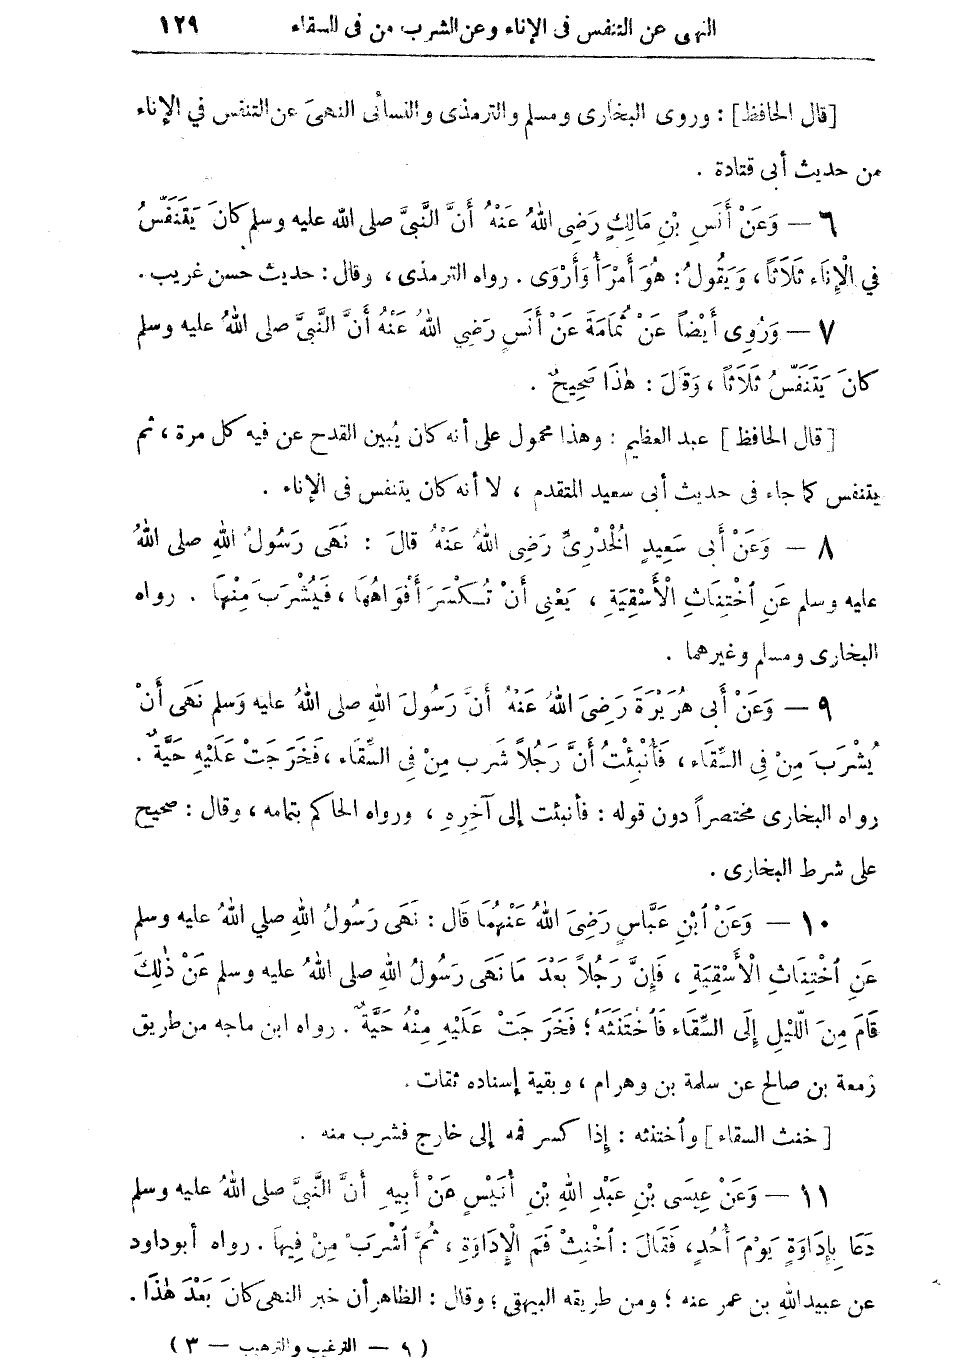 النهى عن التنفس فى الإناء وعن الشرب من فى السقاء ١٢٩
[قال الحافظ] : وروى البخارى ومسلم والترمذى والنسائى النهىَ عن التنفس في الإناء
من حديث أبى قتادة .
٦ — وَعَنْ أَنَسِ بْنِ مَالِكٍ رَضِىَ اللهُ عَنْهُ أَنَّ النَّبِىَّ صلى الله عليه وسلم كَانَ يَتَنَفَّسُ
فِي الْإِنَاءِ ثَلَاثاً ، وَيَقُولُ : هُوَ أَمْرَأُ وَأَرْوَى . رواه الترمذى ، وقال : حديث حسن غريب .
٧ — وَرُوِى أَيْضاً عَنْ ثُمَامَةَ عَنْ أَنَسٍ رَضِيَ اللهُ عَنْهُ أَنَّ النَّبِىَّ صلى اللهُ عليه وسلم
كَانَ يَتَنَفَّسُ ثَلَاثاً ، وَقَالَ : هٰذَا صَحِيحٌ .
[قال الحافظ] عبد العظيم : وهذا محمول على أنه كان يُبين القدح عن فيه كل مرة ، ثم
يتنفس كما جاء فى حديث أبى سعيد المتقدم ، لا أنه كان يتنفس فى الإناء .
٨ — وَعَنْ أَبِى سَعِيدٍ الْخُدْرِىِّ رَضِىَ اللهُ عَنْهُ قالَ : نَهَى رَسُولُ اللهِ صلى اللهُ
عليه وسلم عَنِ ٱخْتِنَاثِ الْأَسْقِيَةِ ، يَعْنِى أَنْ تُكْسَرَ أَفْوَاهُهَا ، فَيُشْرَبَ مِنْهَا . رواه
البخارى ومسلم وغيرهما .
٩ — وَعَنْ أَبِى هُرَيْرَةَ رَضِىَ اللهُ عَنْهُ أَنَّ رَسُولَ اللهِ صلى اللهُ عليه وَسلم نَهَى أَنْ
يُشْرَبَ مِنْ فِى السِّقَاءِ ، فَأُنْبِئْتُ أَنَّ رَجُلاً شَرِبَ مِنْ فِى السِّقَاءِ ، فَخَرَجَتْ عَلَيْهِ حَيَّةٌ .
رواه البخارى مختصراً دون قوله : فأنبئت إلى آخِرِهِ ، ورواه الحاكم بتمامه ، وقال : صحيح
على شرط البخارى .
١٠ — وَعَنْ ٱبْنِ عَبَّاسٍ رَضِىَ اللهُ عَنْهُمَا قَالَ : نَهَى رَسُولُ اللهِ صلي اللهُ عليه وسلم
عَنِ ٱخْتِنَاثِ الْأَسْقِيَةِ ، فَإِنَّ رَجُلاً بَعْدَ مَا نَهَى رَسُولُ اللهِ صلى اللهُ عليه وسلم عَنْ ذٰلِكَ
قَامَ مِنَ اللَّيْلِ إِلَى السِّقَاءِ فَٱخْتَنَثَهُ ؛ فَخَرَجَتْ عَلَيْهِ مِنْهُ حَيَّةٌ . رواه ابن ماجه من طريق
زمعة بن صالح عن سلمة بن وهرام ، وبقية إسناده ثقات .
[خنث السقاء] وٱختنثه : إذا كسر فمه إلى خارج فشرب منه .
١١ — وَعَنْ عِيسَى بْنِ عَبْدِ اللهِ بْنِ أُنَيْسٍ عَنْ أَبِيهِ أَنَّ النَّبِىَّ صلى اللهُ عليه وسلم
دَعَا بِإِدَاوَةٍ يَوْمَ أُحُدٍ ، فَقَالَ : ٱخْنِثْ فَمَ الْإِدَاوَةِ ، ثُمَّ ٱشْرَبْ مِنْ فِيهَا . رواه أبو داود
عن عبيد الله بن عمر عنه ؛ ومن طريقه البيهقى ؛ وقال : الظاهر أن خبر النهى كَانَ بَعْدَ هٰذَا .
( ٩ — الترغيب والترهيب — ٣ )